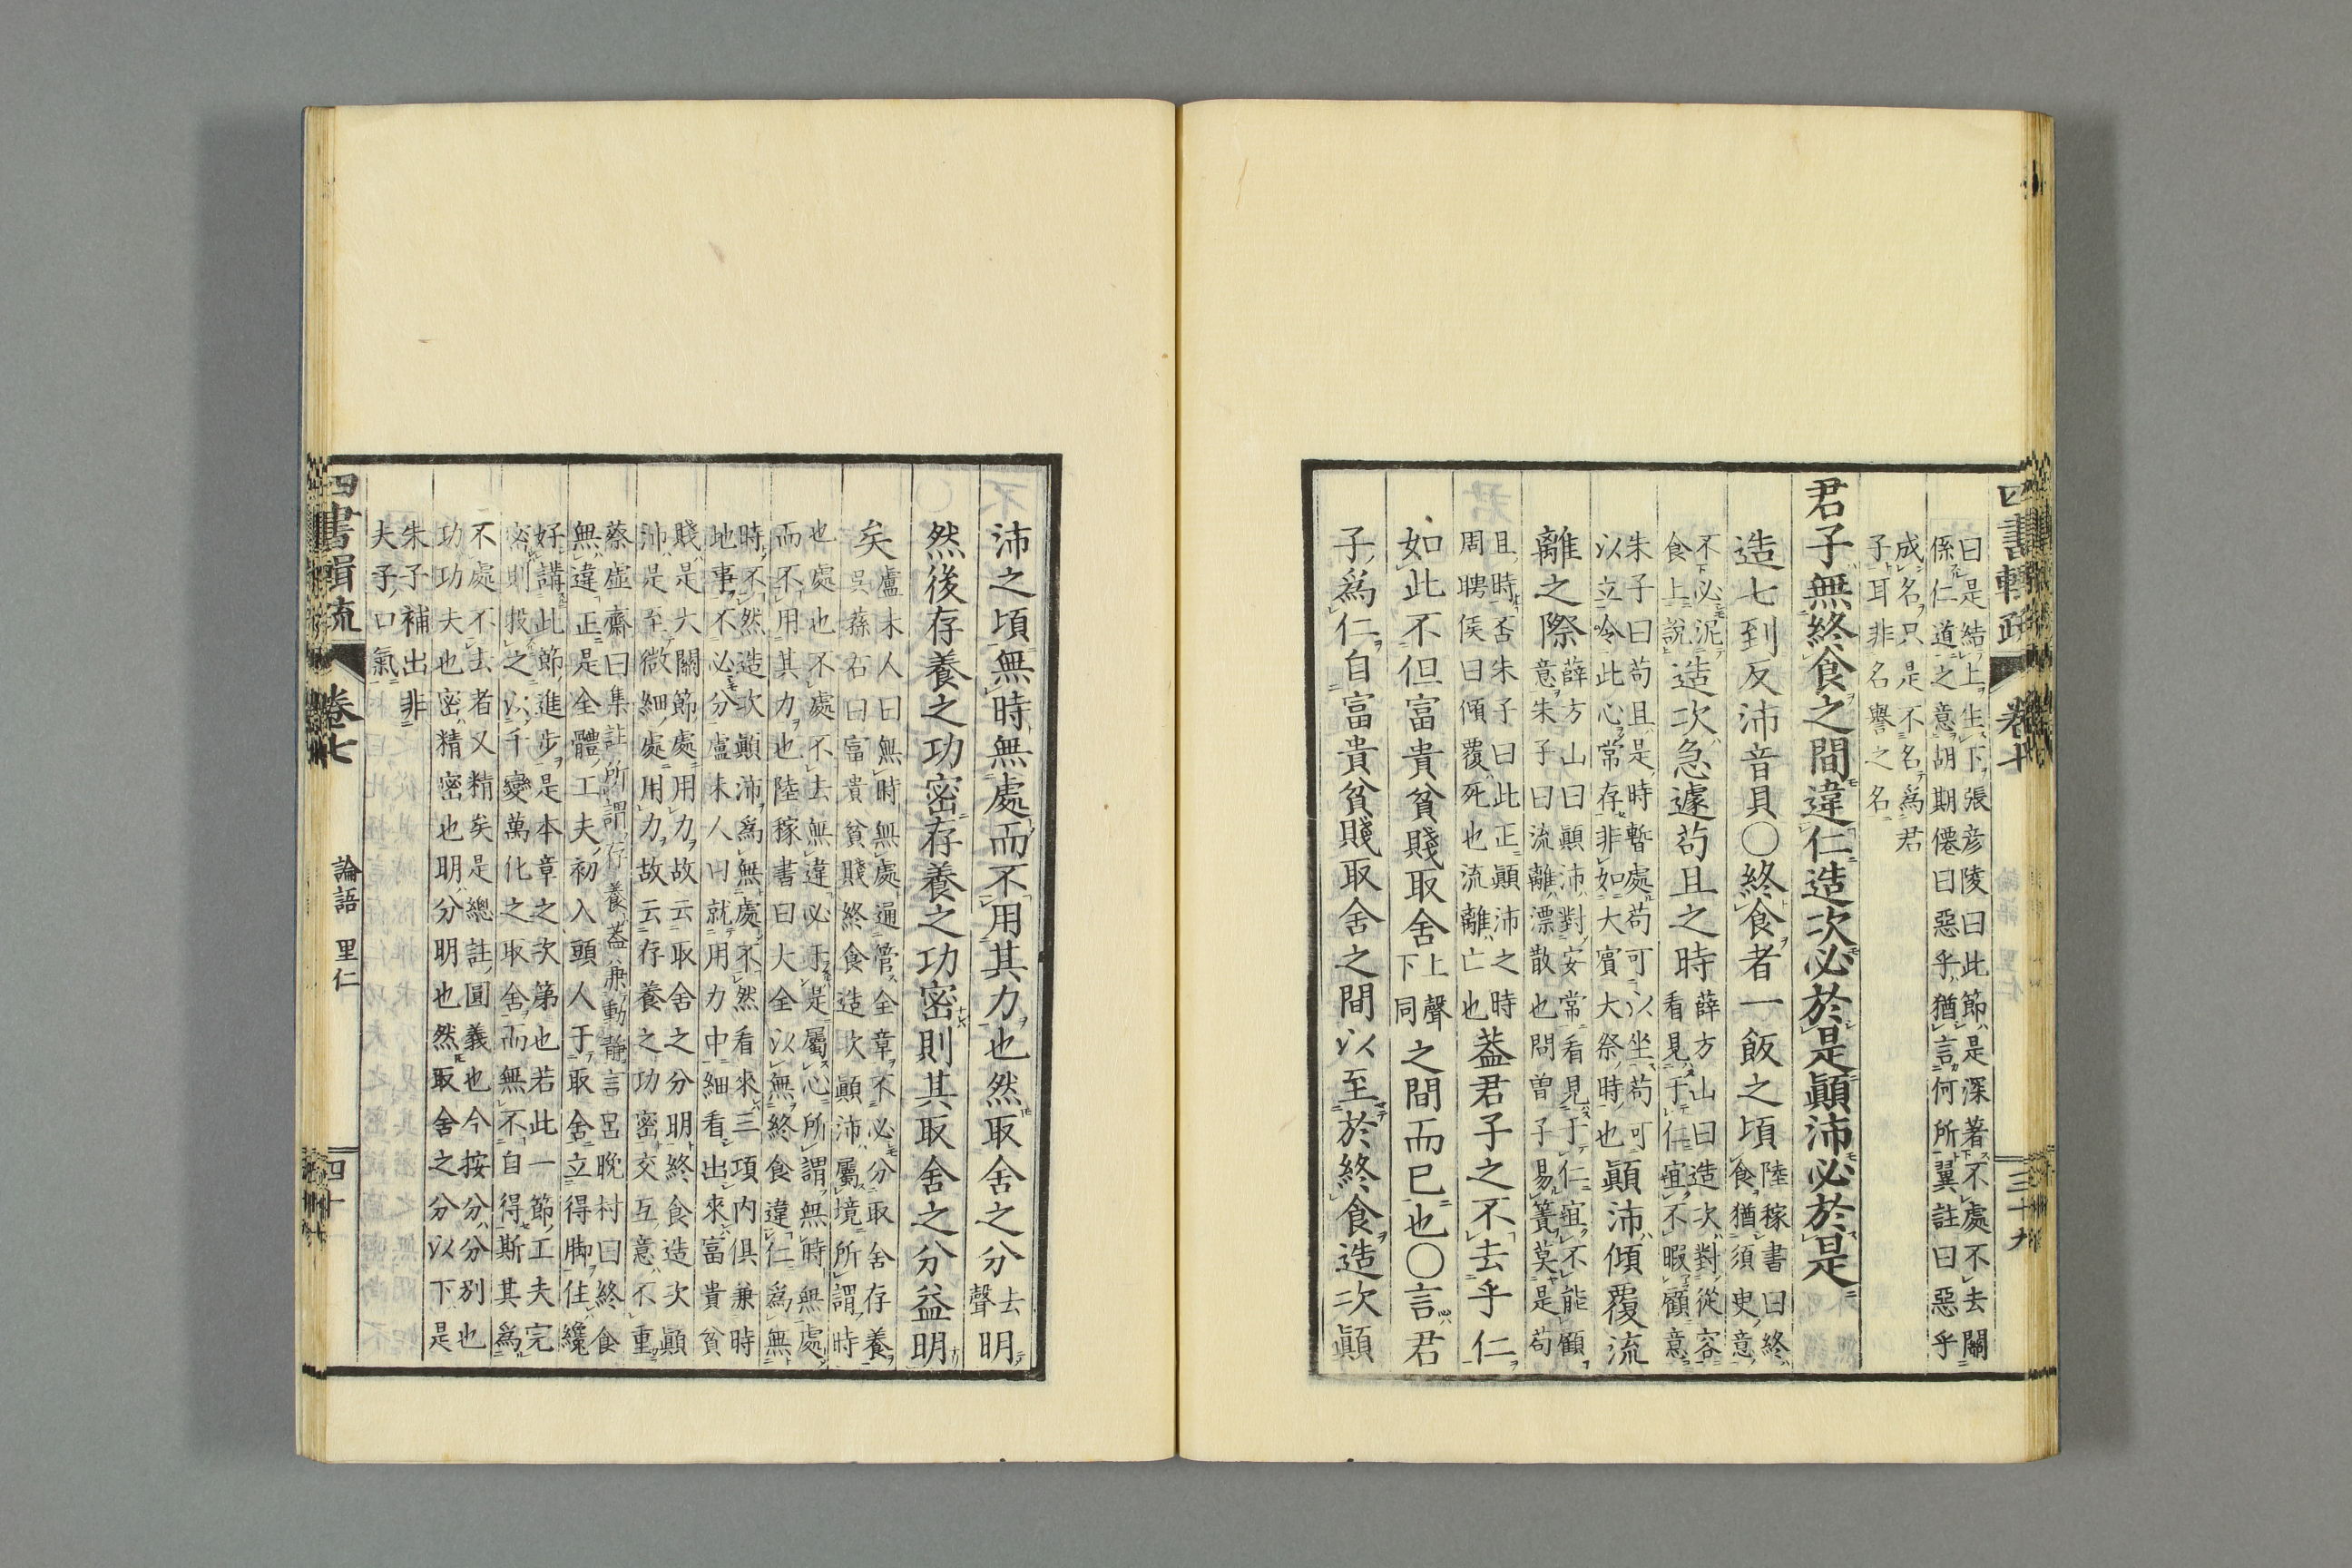 四書輯疏 卷七 三十九
曰是結上生下張彦陵曰此節是深著不處不去關
係仁道之意胡期僊曰惡乎猶言何所翼註曰惡乎
成名只是不名爲君
子耳非名譽之名
君子無終食之間違仁造次必於是顚沛必於是
造七到反沛音貝○終食者一飯之頃
陸稼書曰終
食猶須臾意
不必泥
食上說
造次急遽苟且之時
薛方山曰造次對從容
看見于仁誼不暇顧意
朱子曰苟且是時暫處苟可以坐苟可
以立令此心常存非如大賓大祭時也
顚沛傾覆流
離之際
薛方山曰顚沛對安常看見于仁誼不能顧
意朱子曰流離漂散也問曽子易簀莫是苟
且時否朱子曰此正顚沛之時
周聘侯曰傾覆死也流離亡也
葢君子之不去乎仁
如此不但富貴貧賤取舍
上聲
下同
之間而已也○言君
子爲仁自富貴貧賤取舍之間以至於終食造次顚
沛之頃無時無處而不用其力也然取舍之分
去
聲
明
然後存養之功密存養之功密則其取舍之分益明
矣
盧未人曰無時無處通管全章不必分取舍存養
吳蓀右曰富貴貧賤終食造次顚沛屬境所謂時
也處也不處不去無違必于是屬心所謂無時無處
而不用其力也陸稼書曰大全以無終食違仁爲無
時不然造次顚沛爲無處不然看來三項內俱兼時
地事不必分盧未人曰就用力中細看出來富貴貧
賤是大關節處用力故云取舍之分明終食造次顚
沛是至微細處用力故云存養之功密交互意不重
蔡虛齋曰集註所謂存養葢兼動靜言呂晩村曰終食
無違正是全體工夫初入頭人于取舍立得脚住纔
好講此節進步是本章之次第也若此一節工夫完
密則報之以千變萬化之取舍而無不自得斯其爲
不處不去者又精矣是總註圓義也今按分分別也
功功夫也密精密也明分明也然取舍之分以下是
朱子補出非
夫子口氣
四書輯疏 卷七 論語 里仁 四十